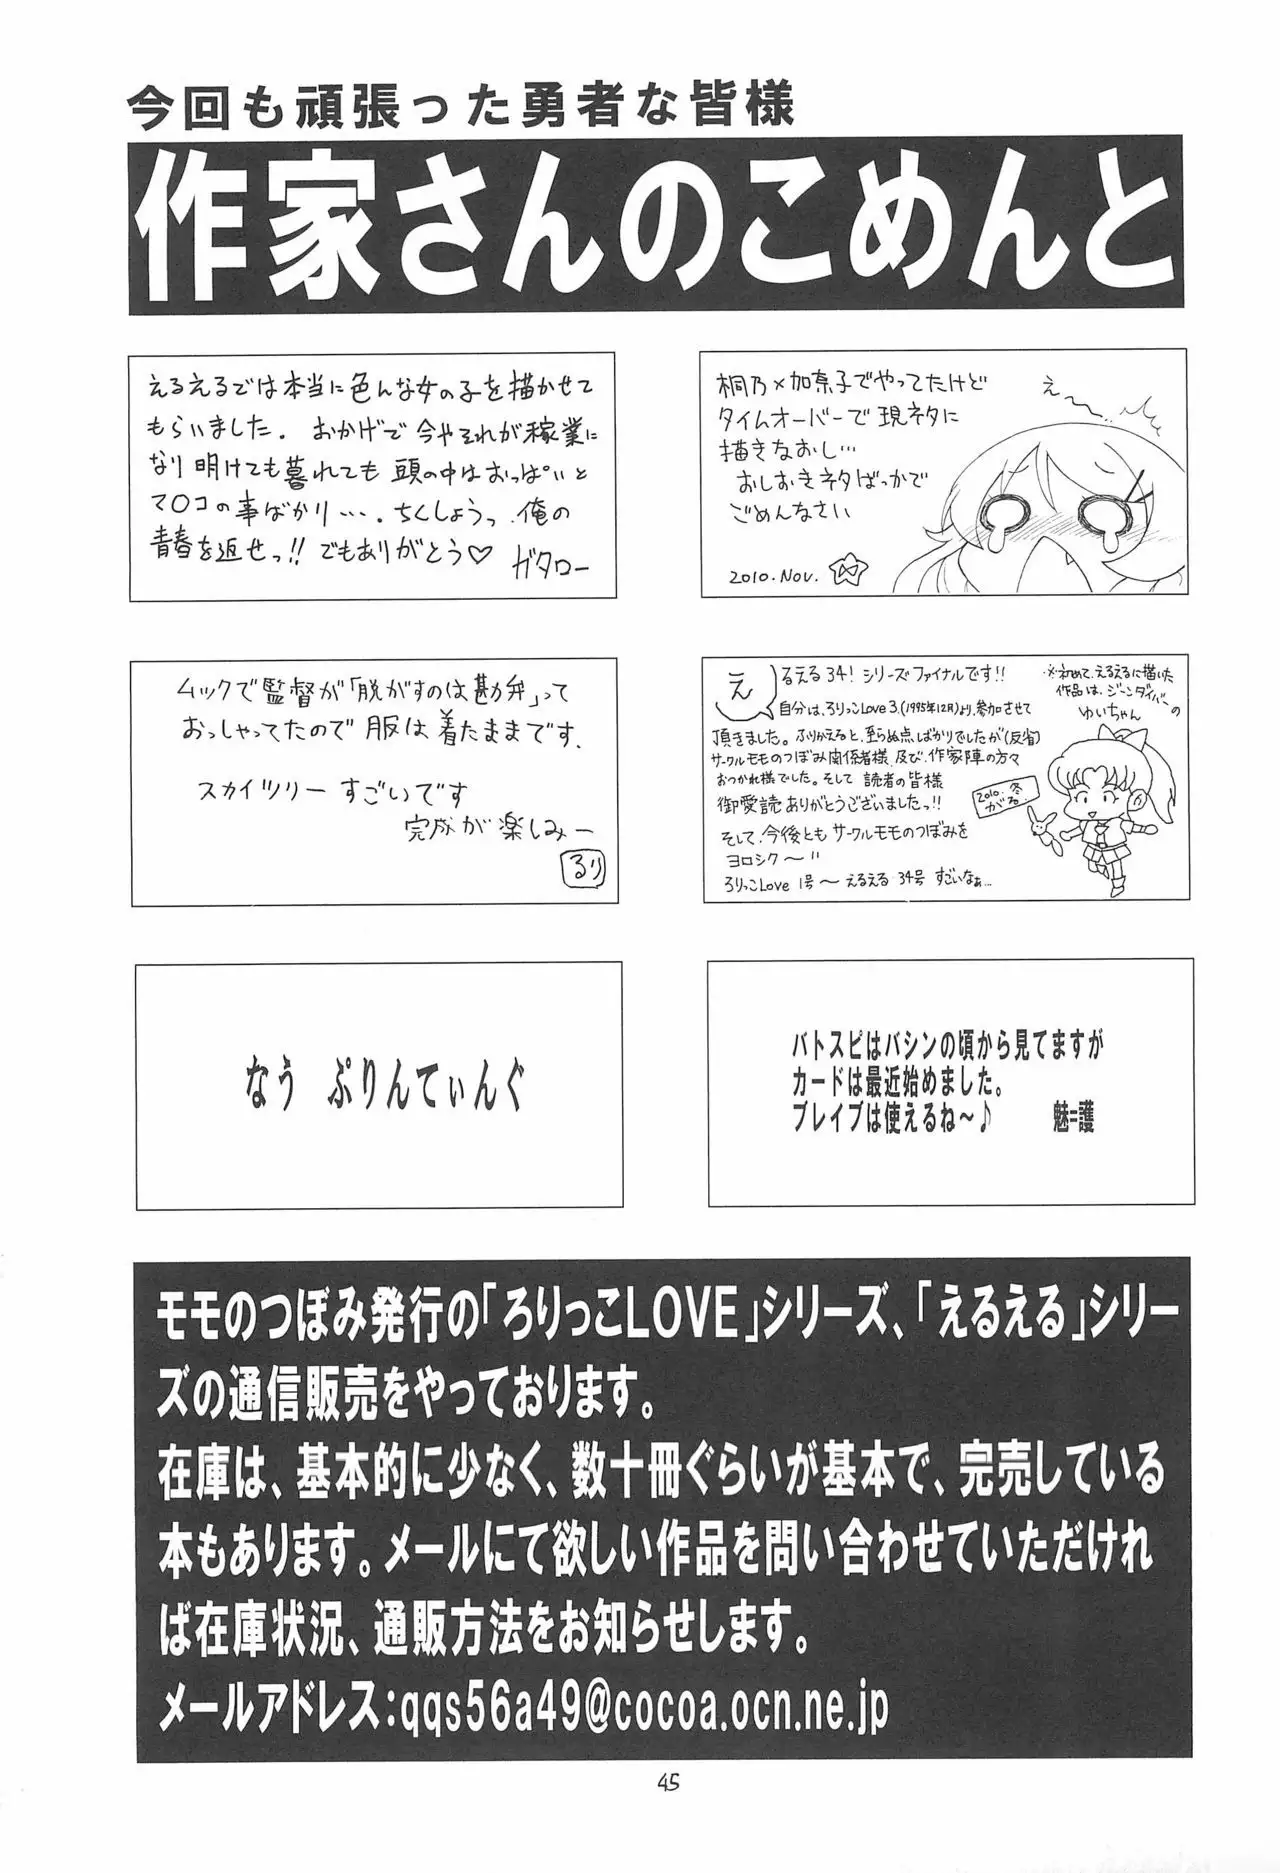 今回も頑張った勇者な皆様
作家さんのこめんと
えるえるでは本当に色んな女の子を描かせて
もらいました。おかげで今やそれが稼業に
なり明けても暮れても頭の中はおっぱいと
マ○コの事ばかり…。ちくしょうっ俺の
青春を返せっ!!でもありがとう♡ ガタロー
桐乃×加奈子でやってたけど
タイムオーバーで現ネタに
描きなおし…
おしおきネタばっかで
ごめんなさい
2010.Nov.
え〜
ムックで監督が「脱がすのは勘弁」って
おっしゃってたので服は着たままです.
スカイツリーすごいです
完成が楽しみー
るり
えるえる34!シリーズファイナルです!!
自分は、ろりっこLove3.(1995年12月)より、参加させて
頂きました。ふりかえると、至らぬ点ばかりでしたが(反省)
サークルモモのつぼみ関係者様、及び、作家陣の方々
おつかれ様でした。そして読者の皆様
御愛読ありがとうございましたっ!!
そして、今後ともサークルモモのつぼみを
ヨロシク〜"
ろりっこLove 1号〜えるえる34号 すごいなぁ…
※初めて、えるえるに描いた
作品は、ジーンダイバーの
ゆいちゃん
2010.冬
がる
なう ぷりんてぃんぐ
バトスピはバシンの頃から見てますが
カードは最近始めました。
ブレイブは使えるね〜♪ 魅=護
モモのつぼみ発行の「ろりっこLOVE」シリーズ、「えるえる」シリー
ズの通信販売をやっております。
在庫は、基本的に少なく、数十冊ぐらいが基本で、完売している
本もあります。メールにて欲しい作品を問い合わせていただけれ
ば在庫状況、通販方法をお知らせします。
メールアドレス:qqs56a49@cocoa.ocn.ne.jp
45